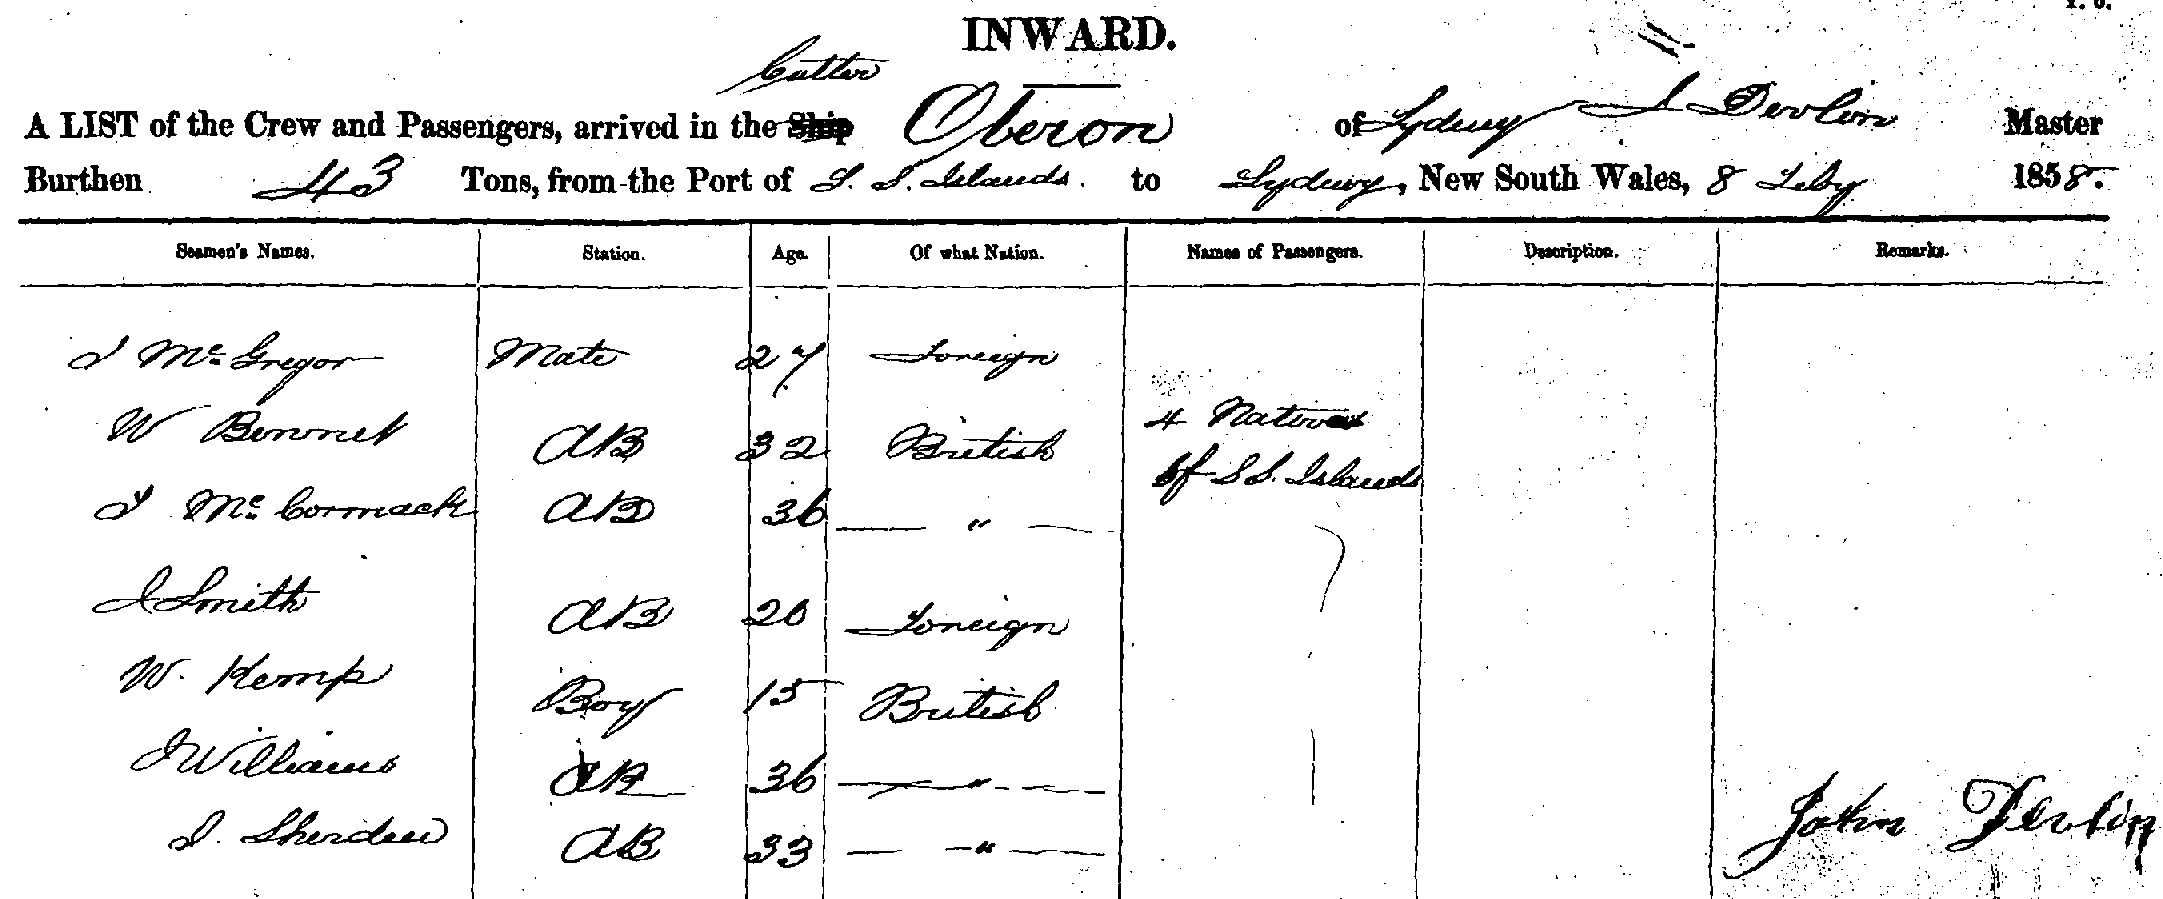 INWARD.
Cutter
A LIST of the Crew and Passengers, arrived in the Ship Oberon of Sydney J Devlin Master
Burthen 43 Tons, from the Port of S. S. Islands. to Sydney, New South Wales, 8 Feby 1858.
Seamen's Names. Station. Age. Of what Nation. Names of Passengers. Description. Remarks.
J McGregor Mate 27 Foreign
W Bennet AB 32 British 4 Natives
of S S. Islands
J McCormack AB 36 — " —
J Smith AB 26 Foreign
W. Kemp Boy 15 British
J Williams AB 36 — " —
J. Sherden AB 33 — " —
John Devlin